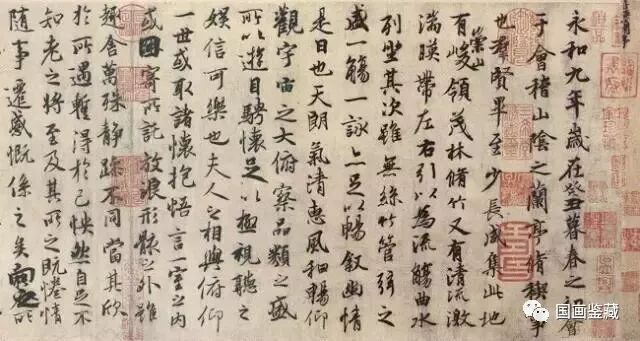 永和九年歲在癸丑暮春之初會
于會稽山陰之蘭亭脩稧事
也羣賢畢至少長咸集此地
有崇山峻領茂林脩竹又有清流激
湍暎帶左右引以為流觴曲水
列坐其次雖無絲竹管弦之
盛一觴一詠亦足以暢敘幽情
是日也天朗氣清惠風和暢仰
觀宇宙之大俯察品類之盛
所以遊目騁懷足以極視聽之
娛信可樂也夫人之相與俯仰
一世或取諸懷抱悟言一室之內
或因寄所託放浪形骸之外雖
趣舍萬殊靜躁不同當其欣
於所遇蹔得於己怏然自足不
知老之將至及其所之既惓情
隨事遷感慨係之矣向之所
国画鉴藏